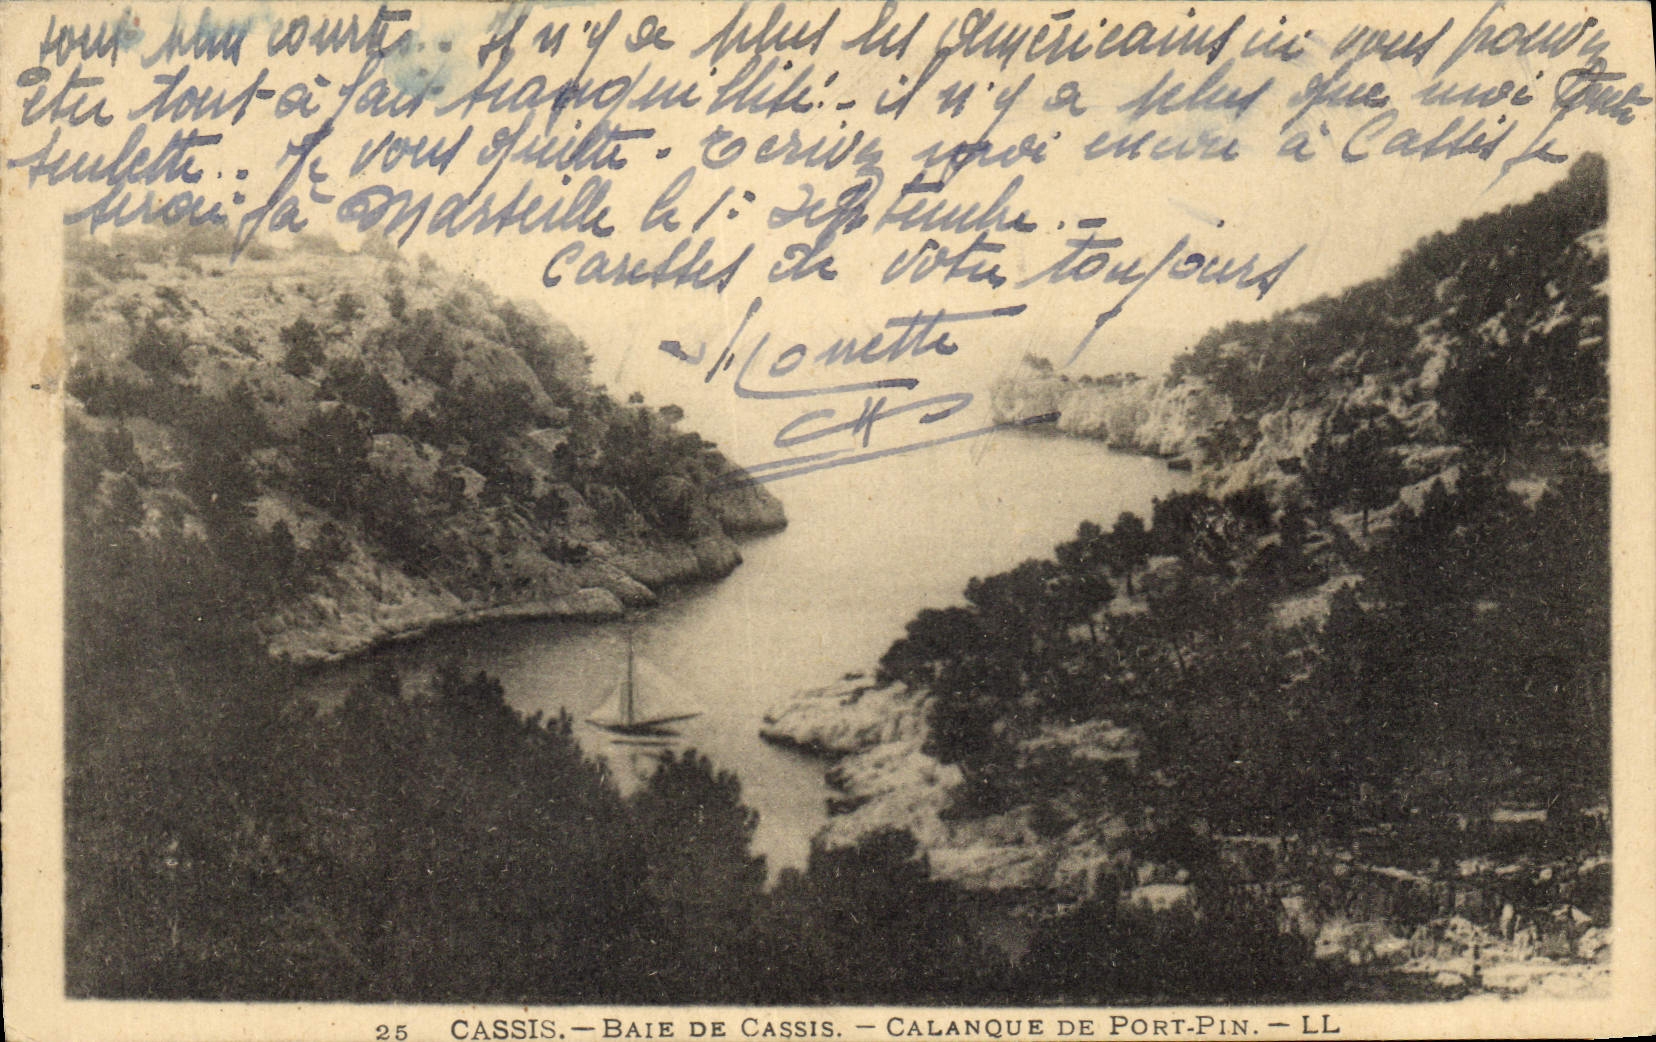 sont plus courts.. Il n'y a plus les Américains ici vous pouvez
être tout à fait tranquillité! - il n'y a plus que moi toute
seulette.. Je vous quitte. Ecrivez moi encore à Cassis je
serai à Marseille le 1: Septembre. -
Caresses de votre toujours
25 CASSIS. — BAIE DE CASSIS. — CALANQUE DE PORT-PIN. — LL